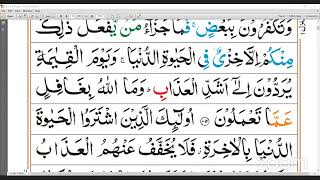 وَتَكْفُرُوْنَ بِبَعْضٍ ۚ فَمَا جَزَآءُ مَنْ يَّفْعَلُ ذٰلِكَ
مِنْكُمْ اِلَّا خِزْیٌ فِی الْحَيٰوةِ الدُّنْيَا ۚ وَيَوْمَ الْقِيٰمَةِ
يُرَدُّوْنَ اِلٰٓی اَشَدِّ الْعَذَابِ ؕ وَمَا اللّٰهُ بِغَافِلٍ
عَمَّا تَعْمَلُوْنَ ۝ اُولٰٓئِكَ الَّذِيْنَ اشْتَرَوُا الْحَيٰوةَ
الدُّنْيَا بِالْاٰخِرَةِ ؗ فَلَا يُخَفَّفُ عَنْهُمُ الْعَذَابُ